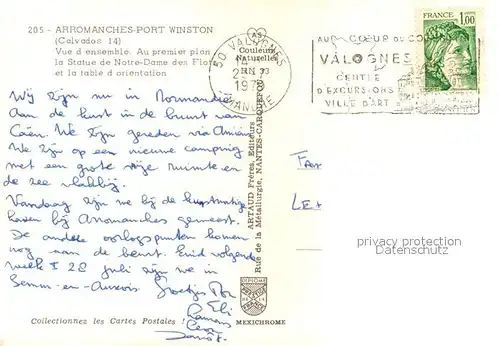 205 - ARROMANCHES-PORT WINSTON
(Calvados 14)
Vue d'ensemble. Au premier plan
la Statue de Notre-Dame des Flots
et la table d'orientation
Couleurs
Naturelles
RN 33
50 VALOGNES
MANCHE
AU CŒUR DU CO
VALOGNES
CENTRE
D'EXCURSIONS
VILLE D'ART
FRANCE
1,00
Wij zijn nu in Normandië
Aan de kust in de buurt van
Caen. We zijn gereden via Amiens
We zijn op een nieuwe camping
met een grote vrije ruimte en
de zee vlakbij.
Vandaag zijn we bij de kunstmatige
haven bij Arromanches geweest.
De andere oorlogspunten komen
nog aan de beurt. Eind volgende
week ± 28 juli zijn we in
Semur-en-Auxois Groetjes
Eli
ARTAUD Frères, Editeurs
Rue de la Métallurgie, NANTES-CARQUEFOU
FA
LE
privacy protection
Datenschutz
DIPLOME
PRESTIGE
FRANCE
MEXICHROME
Collectionnez les Cartes Postales !